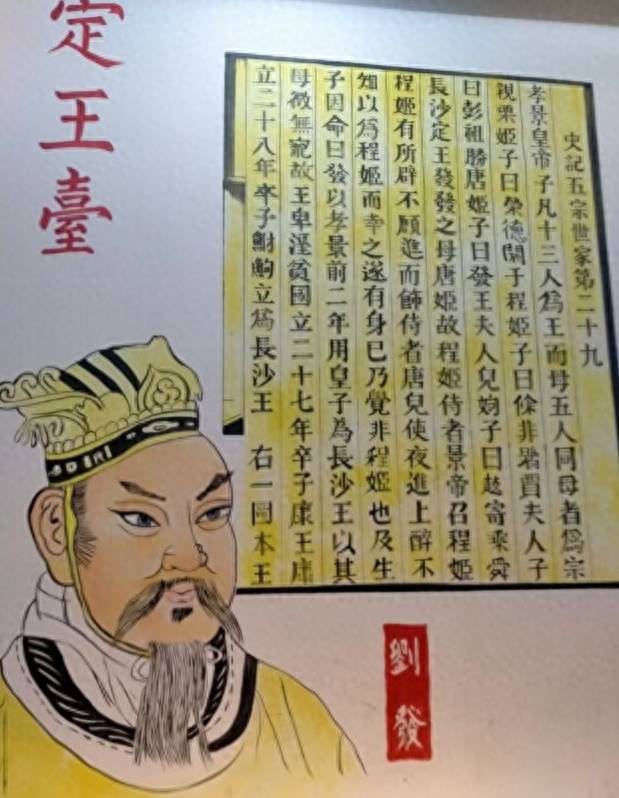 定王臺
史記五宗世家第二十九
孝景皇帝子凡十三人爲王而母五人同母者爲宗
親栗姬子曰榮德閼于程姬子曰餘非端賈夫人子
曰彭祖勝唐姬子曰發王夫人兒姁子曰越寄乘舜
長沙定王發發之母唐姬故程姬侍者景帝召程姬
程姬有所辟不願進而飾侍者唐兒使夜進上醉不
知以爲程姬而幸之遂有身已乃覺非程姬也及生
子因命曰發以孝景前二年用皇子爲長沙王以其
母微無寵故王卑溼貧國立二十七年卒子康王庸
立二十八年卒子鮒鮈立爲長沙王 右一國本王
劉發